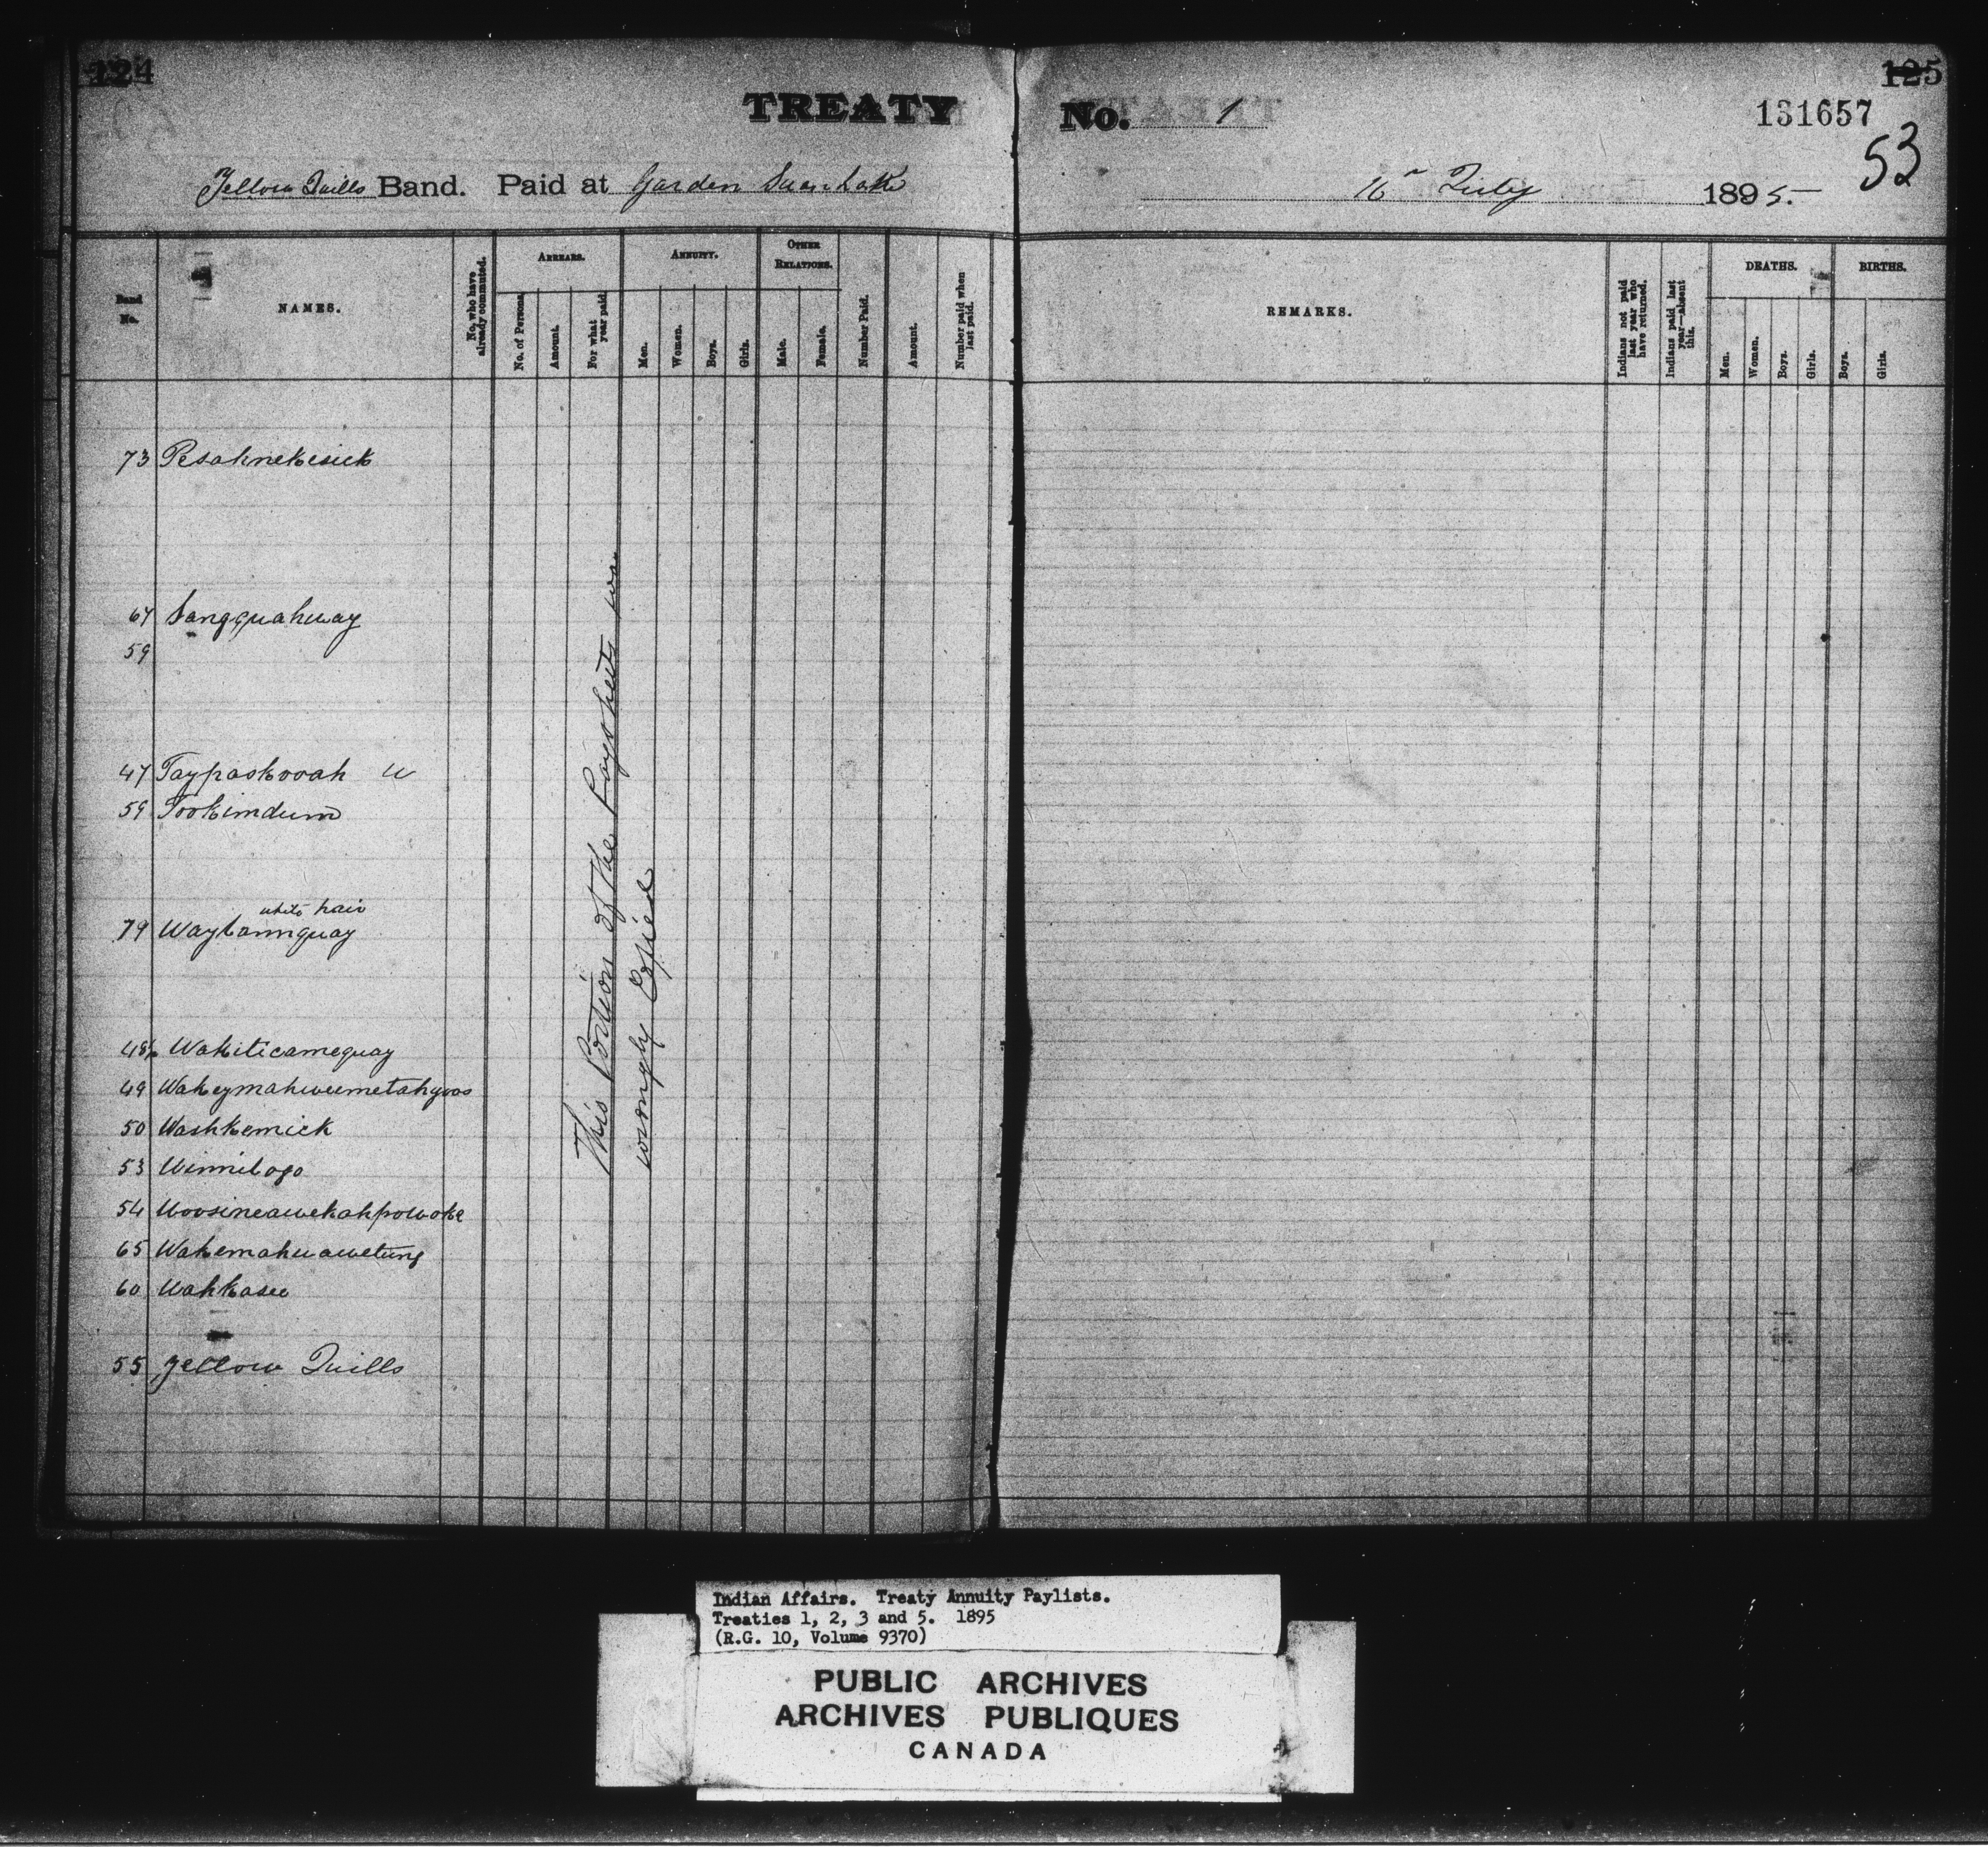 124
125
TREATY No. 1
131657
53
Yellow Quills Band. Paid at Garden Swan Lake 16th July 1895.
Band No.
NAMES.
No. who have already commuted.
ARREARS.
No. of Persons
Amount.
For what year paid.
ANNUITY.
Men.
Women.
Boys.
Girls.
OTHER RELATIONS.
Male.
Female.
Number Paid.
Amount.
Number paid when last paid.
REMARKS.
Indians not paid last year who have returned.
Indians paid last year—absent this.
DEATHS.
Men.
Women.
Boys.
Girls.
BIRTHS.
Boys.
Girls.
73 Pesahnekesick
67 Sangquahway
59
47 Taypaskooah W
59 Tookimdum
white hair
79 Waybannquay
48½ Wakiticamequay
49 Wakeymahweemetahgoos
50 Washkemick
53 Winnibogo
54 Woosineawekahpowoke
65 Wakemahwawetung
60 Wahkasee
55 Yellow Quills
This Portion of the Paysheets was
wrongly Copied
Indian Affairs. Treaty Annuity Paylists.
Treaties 1, 2, 3 and 5. 1895
(R.G. 10, Volume 9370)
PUBLIC ARCHIVES
ARCHIVES PUBLIQUES
CANADA